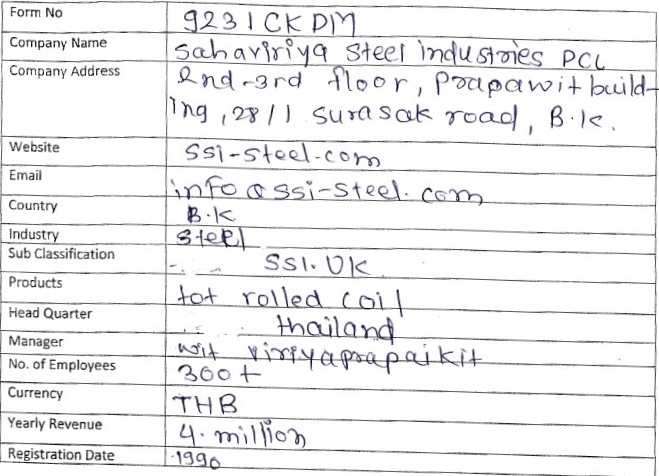 Form No 9231CKDM
Company Name Sahaviriya Steel industries PCL
Company Address 2nd-3rd floor, Prapawit build-
ing, 28/1 surasak road, B.k.
Website ssi-steel.com
Email info@ssi-steel.com
Country B.K
Industry Steel
Sub Classification SSI. UK
Products tot rolled coil
Head Quarter thailand
Manager wit viriyaprapaikit
No. of Employees 300+
Currency THB
Yearly Revenue 4. million
Registration Date 1990